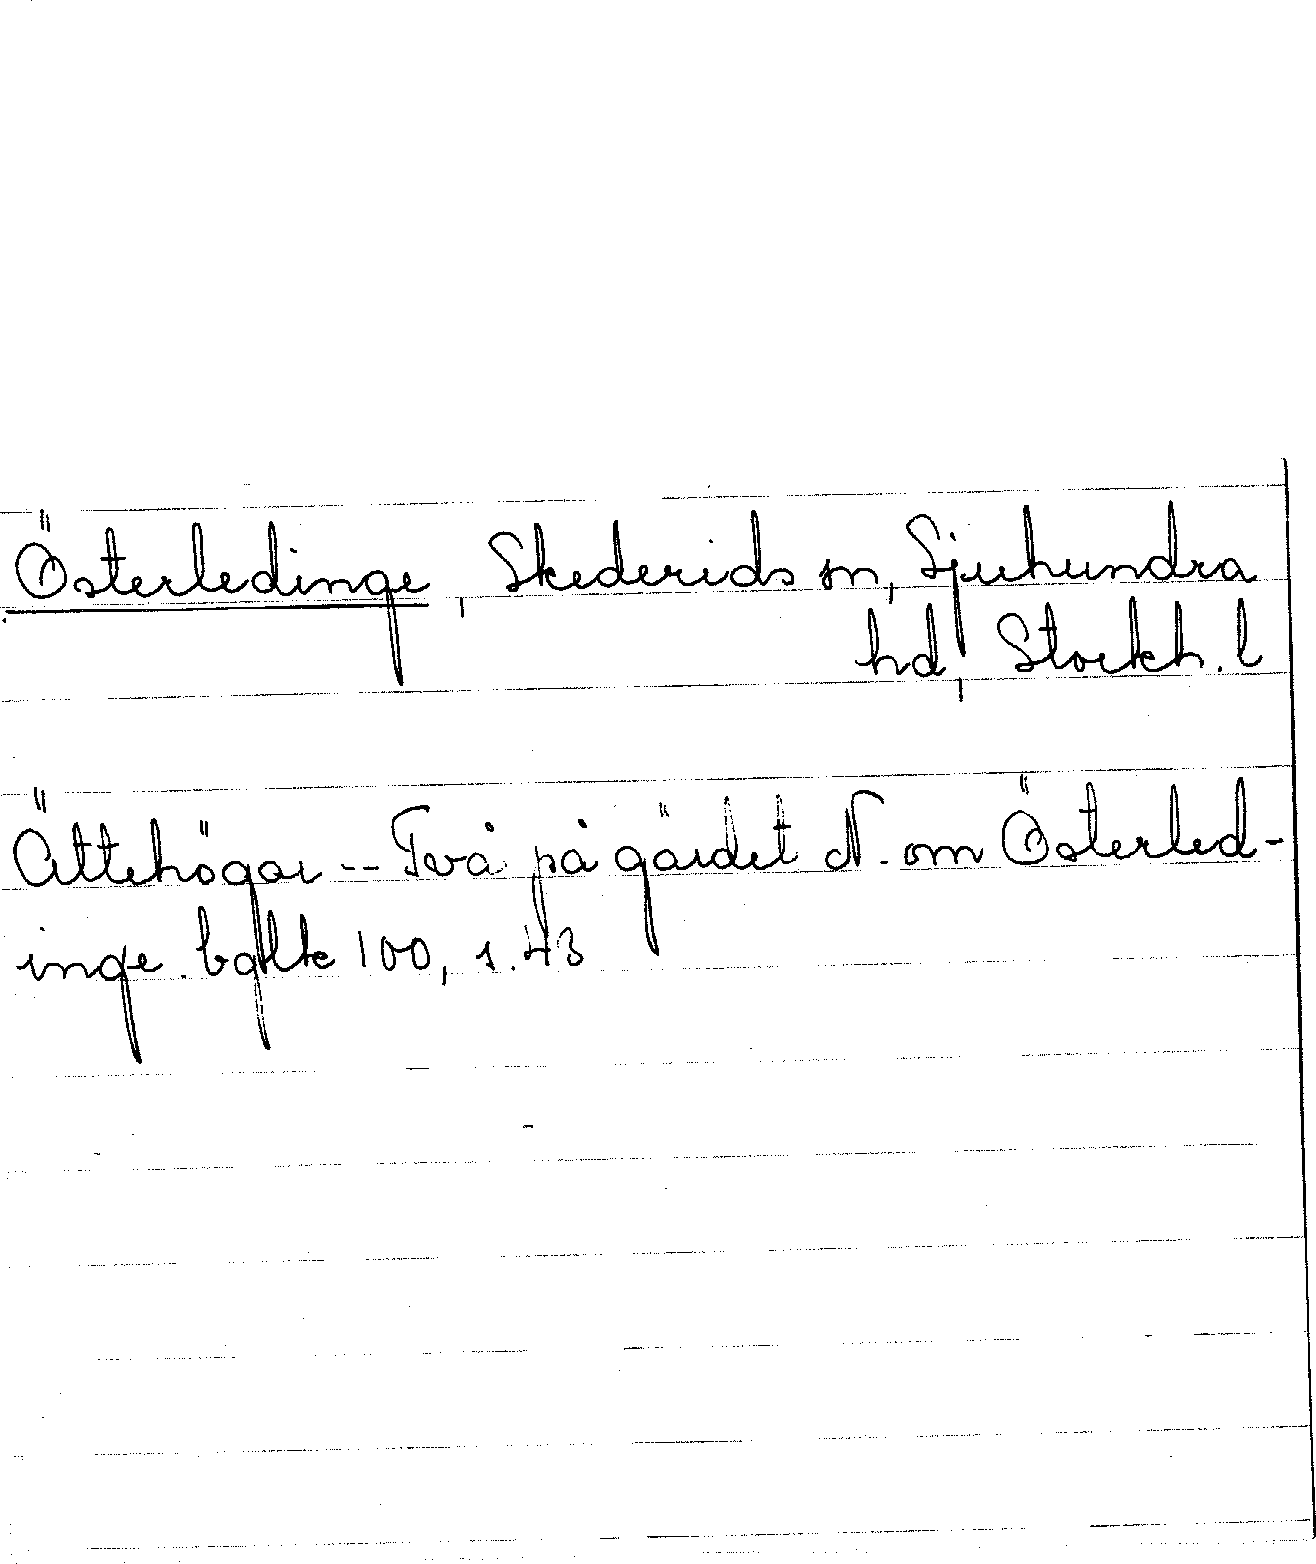 Österledinge, Skederids sn, Sjuhundra
hd, Stockh. l
Ättehögar -- Två på gärdet N. om Österled-
inge. bglk 100, s. 43